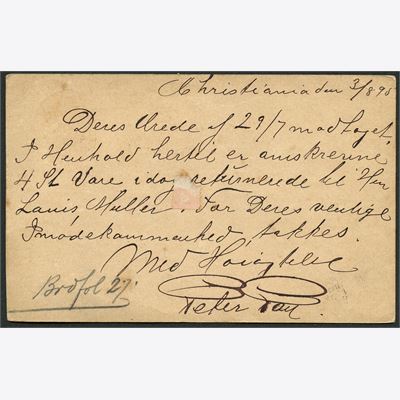 Christiania den 3/8 95
Deres Ærede af 29/7 modtaget,
I Henhold hertil er omskrevne
4 St Vare idag returnerede til Herr
Louis Müller. For Deres venlige
Imødekommenhed, takkes.
Med Høiagtelse
Peter
27/